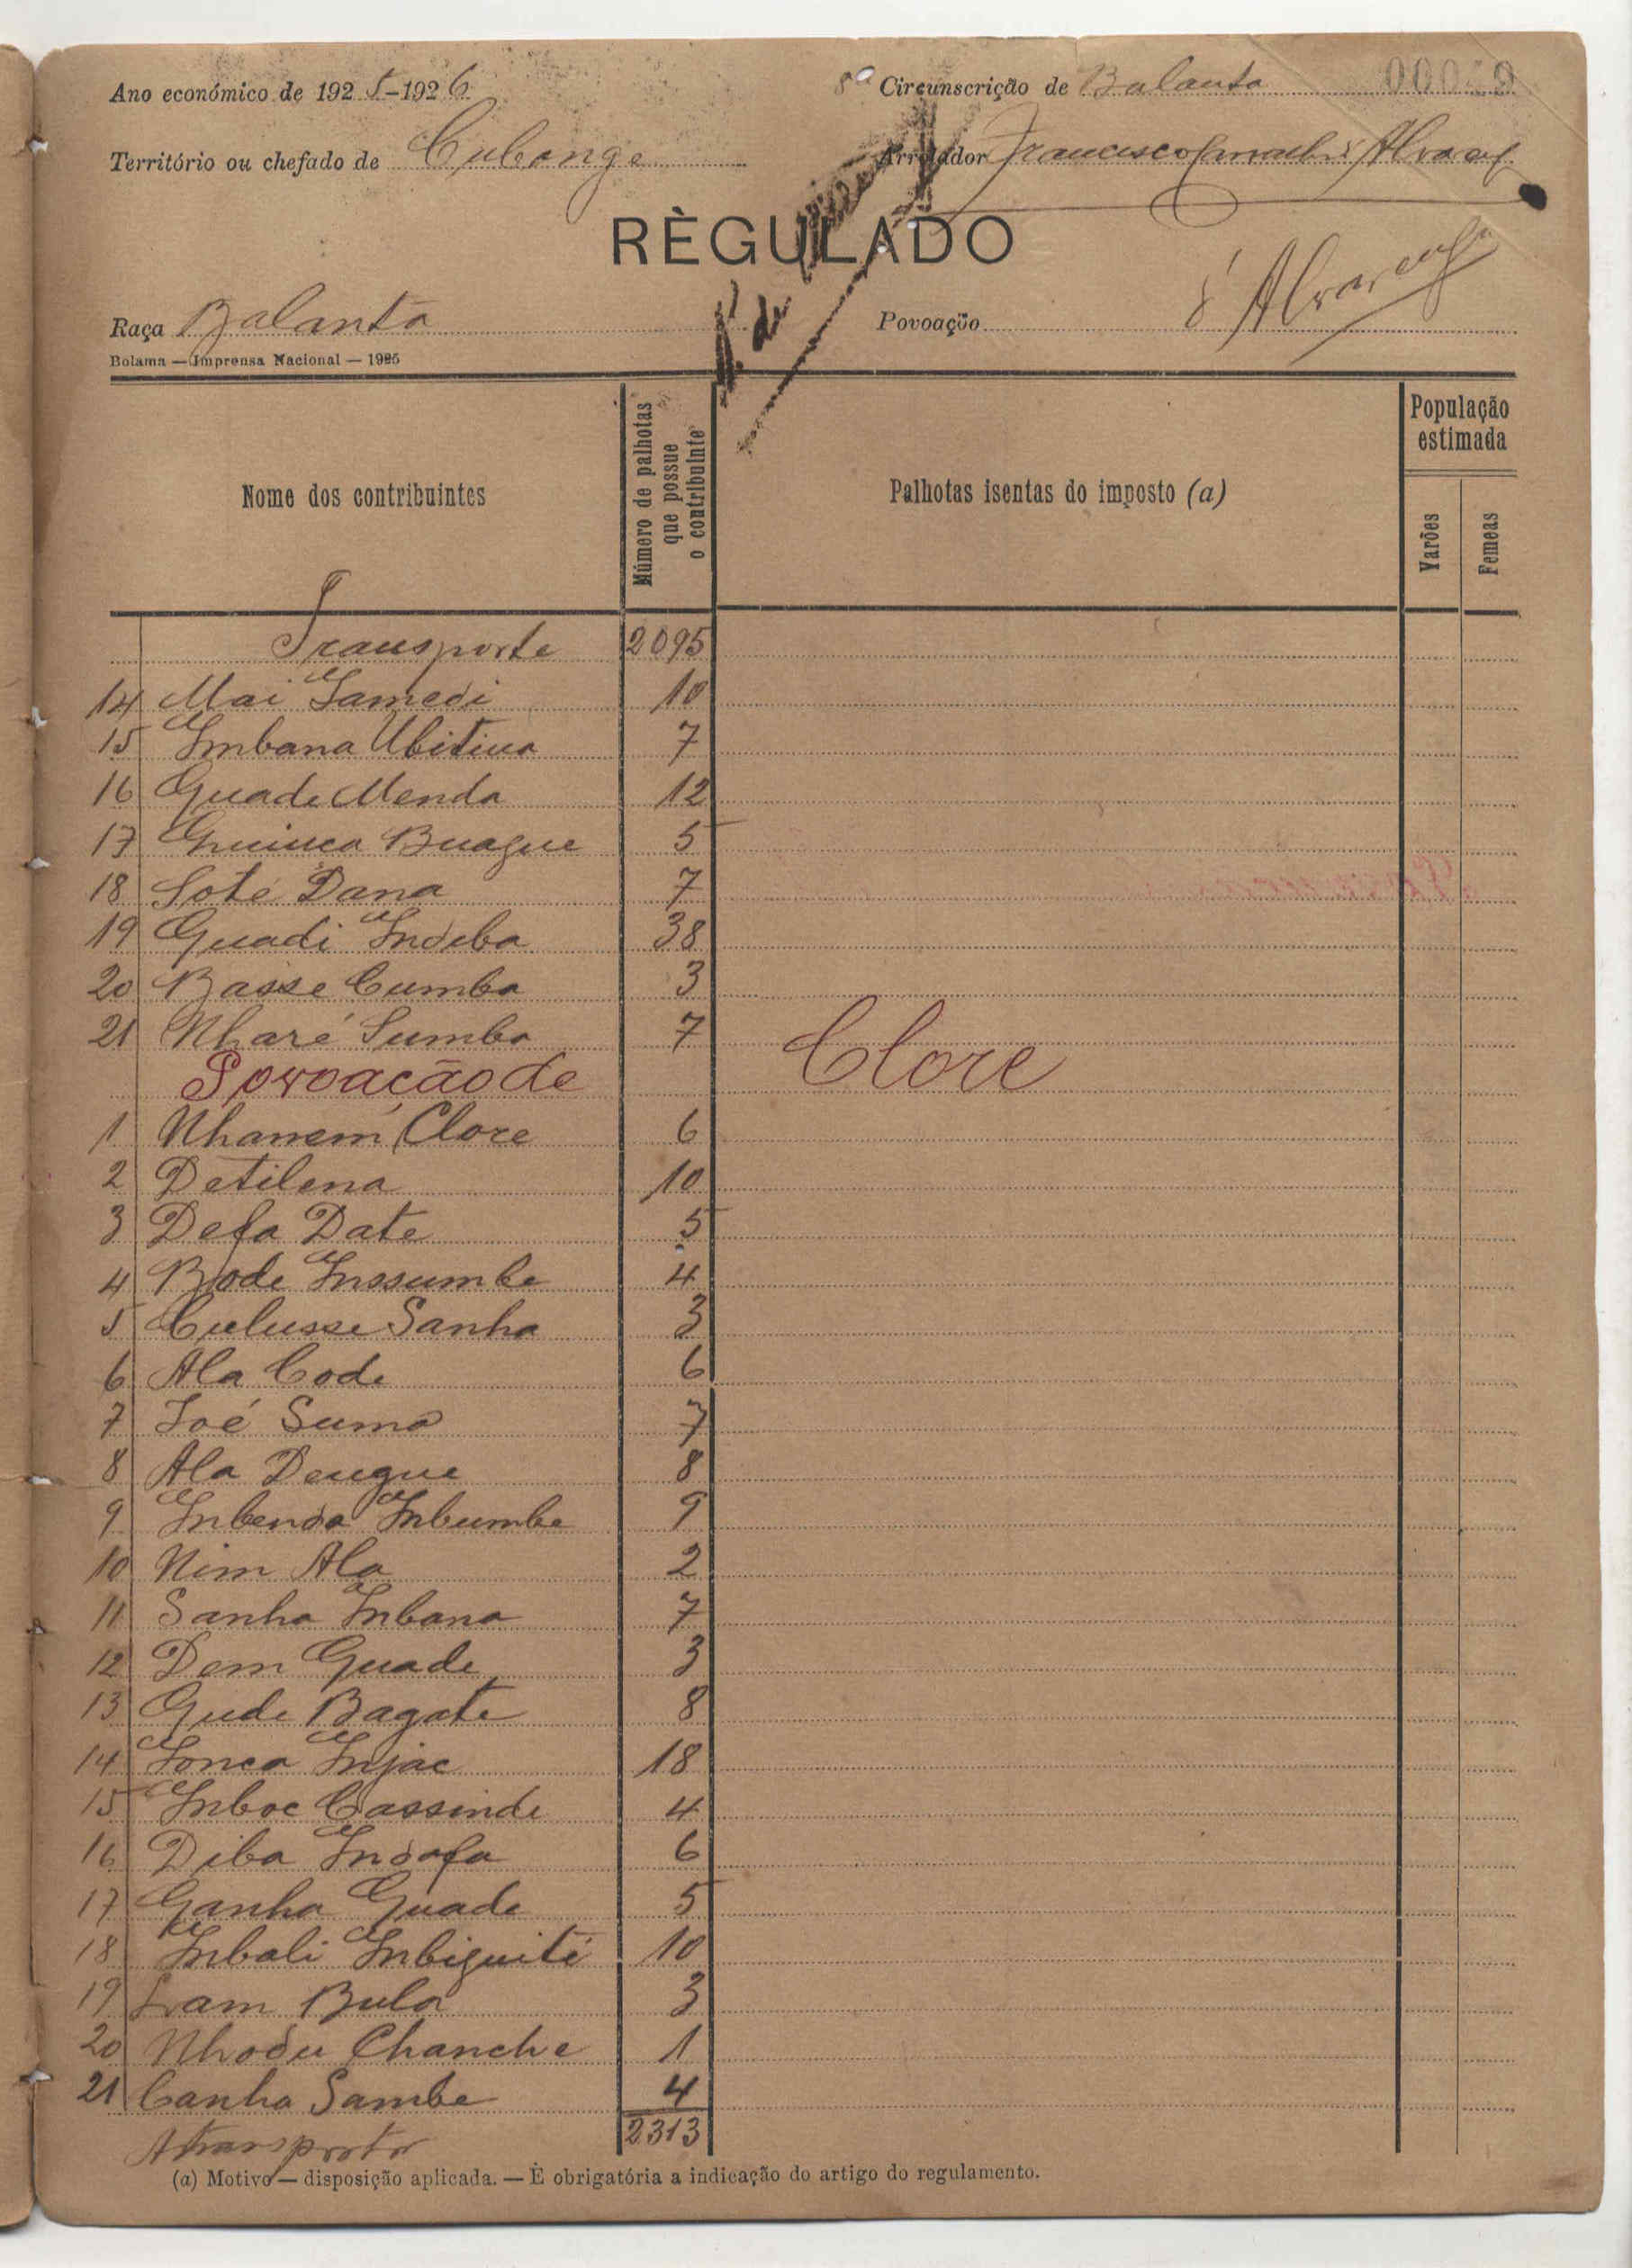 Ano económico de 1925-1926
8ª Circunscrição de Balanta
Território ou chefado de Cubonge
Arrolador Francisco Alvareng
RÈGULADO
Alvareng
Raça Balanta
Povoação
Bolama — Imprensa Nacional — 1925
Nome dos contribuintes
Número de palhotas que possue o contribuinte
Palhotas isentas do imposto (a)
População estimada
Varões
Femeas
Transporte 2095
14 Mai Iamedi 10
15 Imbana Ubitiua 7
16 Guade Menda 12
17 Buague 5
18 Soté Dana 7
19 Guadi Indeba 38
20 Basse Cumba 3
21 Nharé Sumba 7
Povoação de Clore
1 Nhamem Clore 6
2 Detilena 10
3 Defa Date 5
4 Bode Inssumbe 4
5 Culusse Sanha 3
6 Ala Code 6
7 Joé Suma 7
8 Ala Dengue 8
9 Inbenda Inbumbe 9
10 Nim Ala 2
11 Sanha Inbana 7
12 Dem Guade 3
13 Gude Bagate 8
14 Fonca Injac 18
15 Inboc Cassinde 4
16 Diba Indafa 6
17 Ganha Guade 5
18 Inbali Inbiguité 10
19 Iram Bula 3
20 Nhodu Chanche 1
21 Canha Sambe 4
A transportar 2313
(a) Motivo — disposição aplicada. — È obrigatória a indicação do artigo do regulamento.